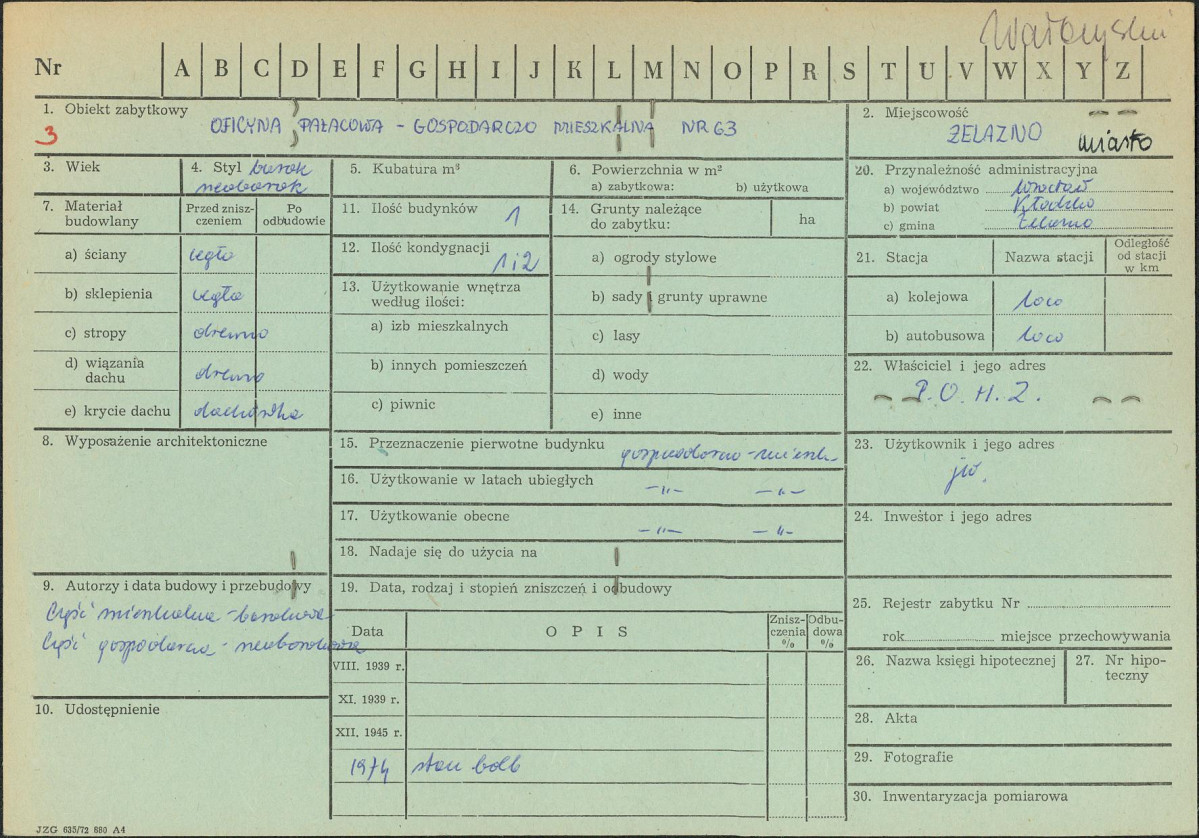 Wałbrzyski
Nr A B C D E F G H I J K L M N O P R S T U V W X Y Z
1. Obiekt zabytkowy
3 OFICYNA PAŁACOWA - GOSPODARCZO MIESZKALNA NR 63
2. Miejscowość
ŻELAZNO miasto
3. Wiek
4. Styl barok
neobarok
5. Kubatura m³
6. Powierzchnia w m²
a) zabytkowa: b) użytkowa
7. Materiał budowlany
Przed zniszczeniem
Po odbudowie
a) ściany cegła
b) sklepienia cegła
c) stropy drewno
d) wiązania dachu drewno
e) krycie dachu dachówka
8. Wyposażenie architektoniczne
9. Autorzy i data budowy i przebudowy
Część mieszkalna - barokowa
Część gospodarcza - neobarokowa
10. Udostępnienie
11. Ilość budynków 1
12. Ilość kondygnacji 1 i 2
13. Użytkowanie wnętrza
według ilości:
a) izb mieszkalnych
b) innych pomieszczeń
c) piwnic
14. Grunty należące
do zabytku:
ha
a) ogrody stylowe
b) sady i grunty uprawne
c) lasy
d) wody
e) inne
15. Przeznaczenie pierwotne budynku gospodarczo-mieszk.
16. Użytkowanie w latach ubiegłych -"- -"-
17. Użytkowanie obecne -"- -"-
18. Nadaje się do użycia na
19. Data, rodzaj i stopień zniszczeń i odbudowy
Data OPIS Zniszczenia % Odbudowa %
VIII. 1939 r.
XI. 1939 r.
XII. 1945 r.
1974 stan dobr
20. Przynależność administracyjna
a) województwo Wrocław
b) powiat Kłodzko
c) gmina Żelazno
21. Stacja
Nazwa stacji
Odległość od stacji w km
a) kolejowa loco
b) autobusowa loco
22. Właściciel i jego adres
P.O.H.Z.
23. Użytkownik i jego adres
jw.
24. Inwestor i jego adres
25. Rejestr zabytku Nr
rok miejsce przechowywania
26. Nazwa księgi hipotecznej
27. Nr hipoteczny
28. Akta
29. Fotografie
30. Inwentaryzacja pomiarowa
JZG 635/72 680 A4